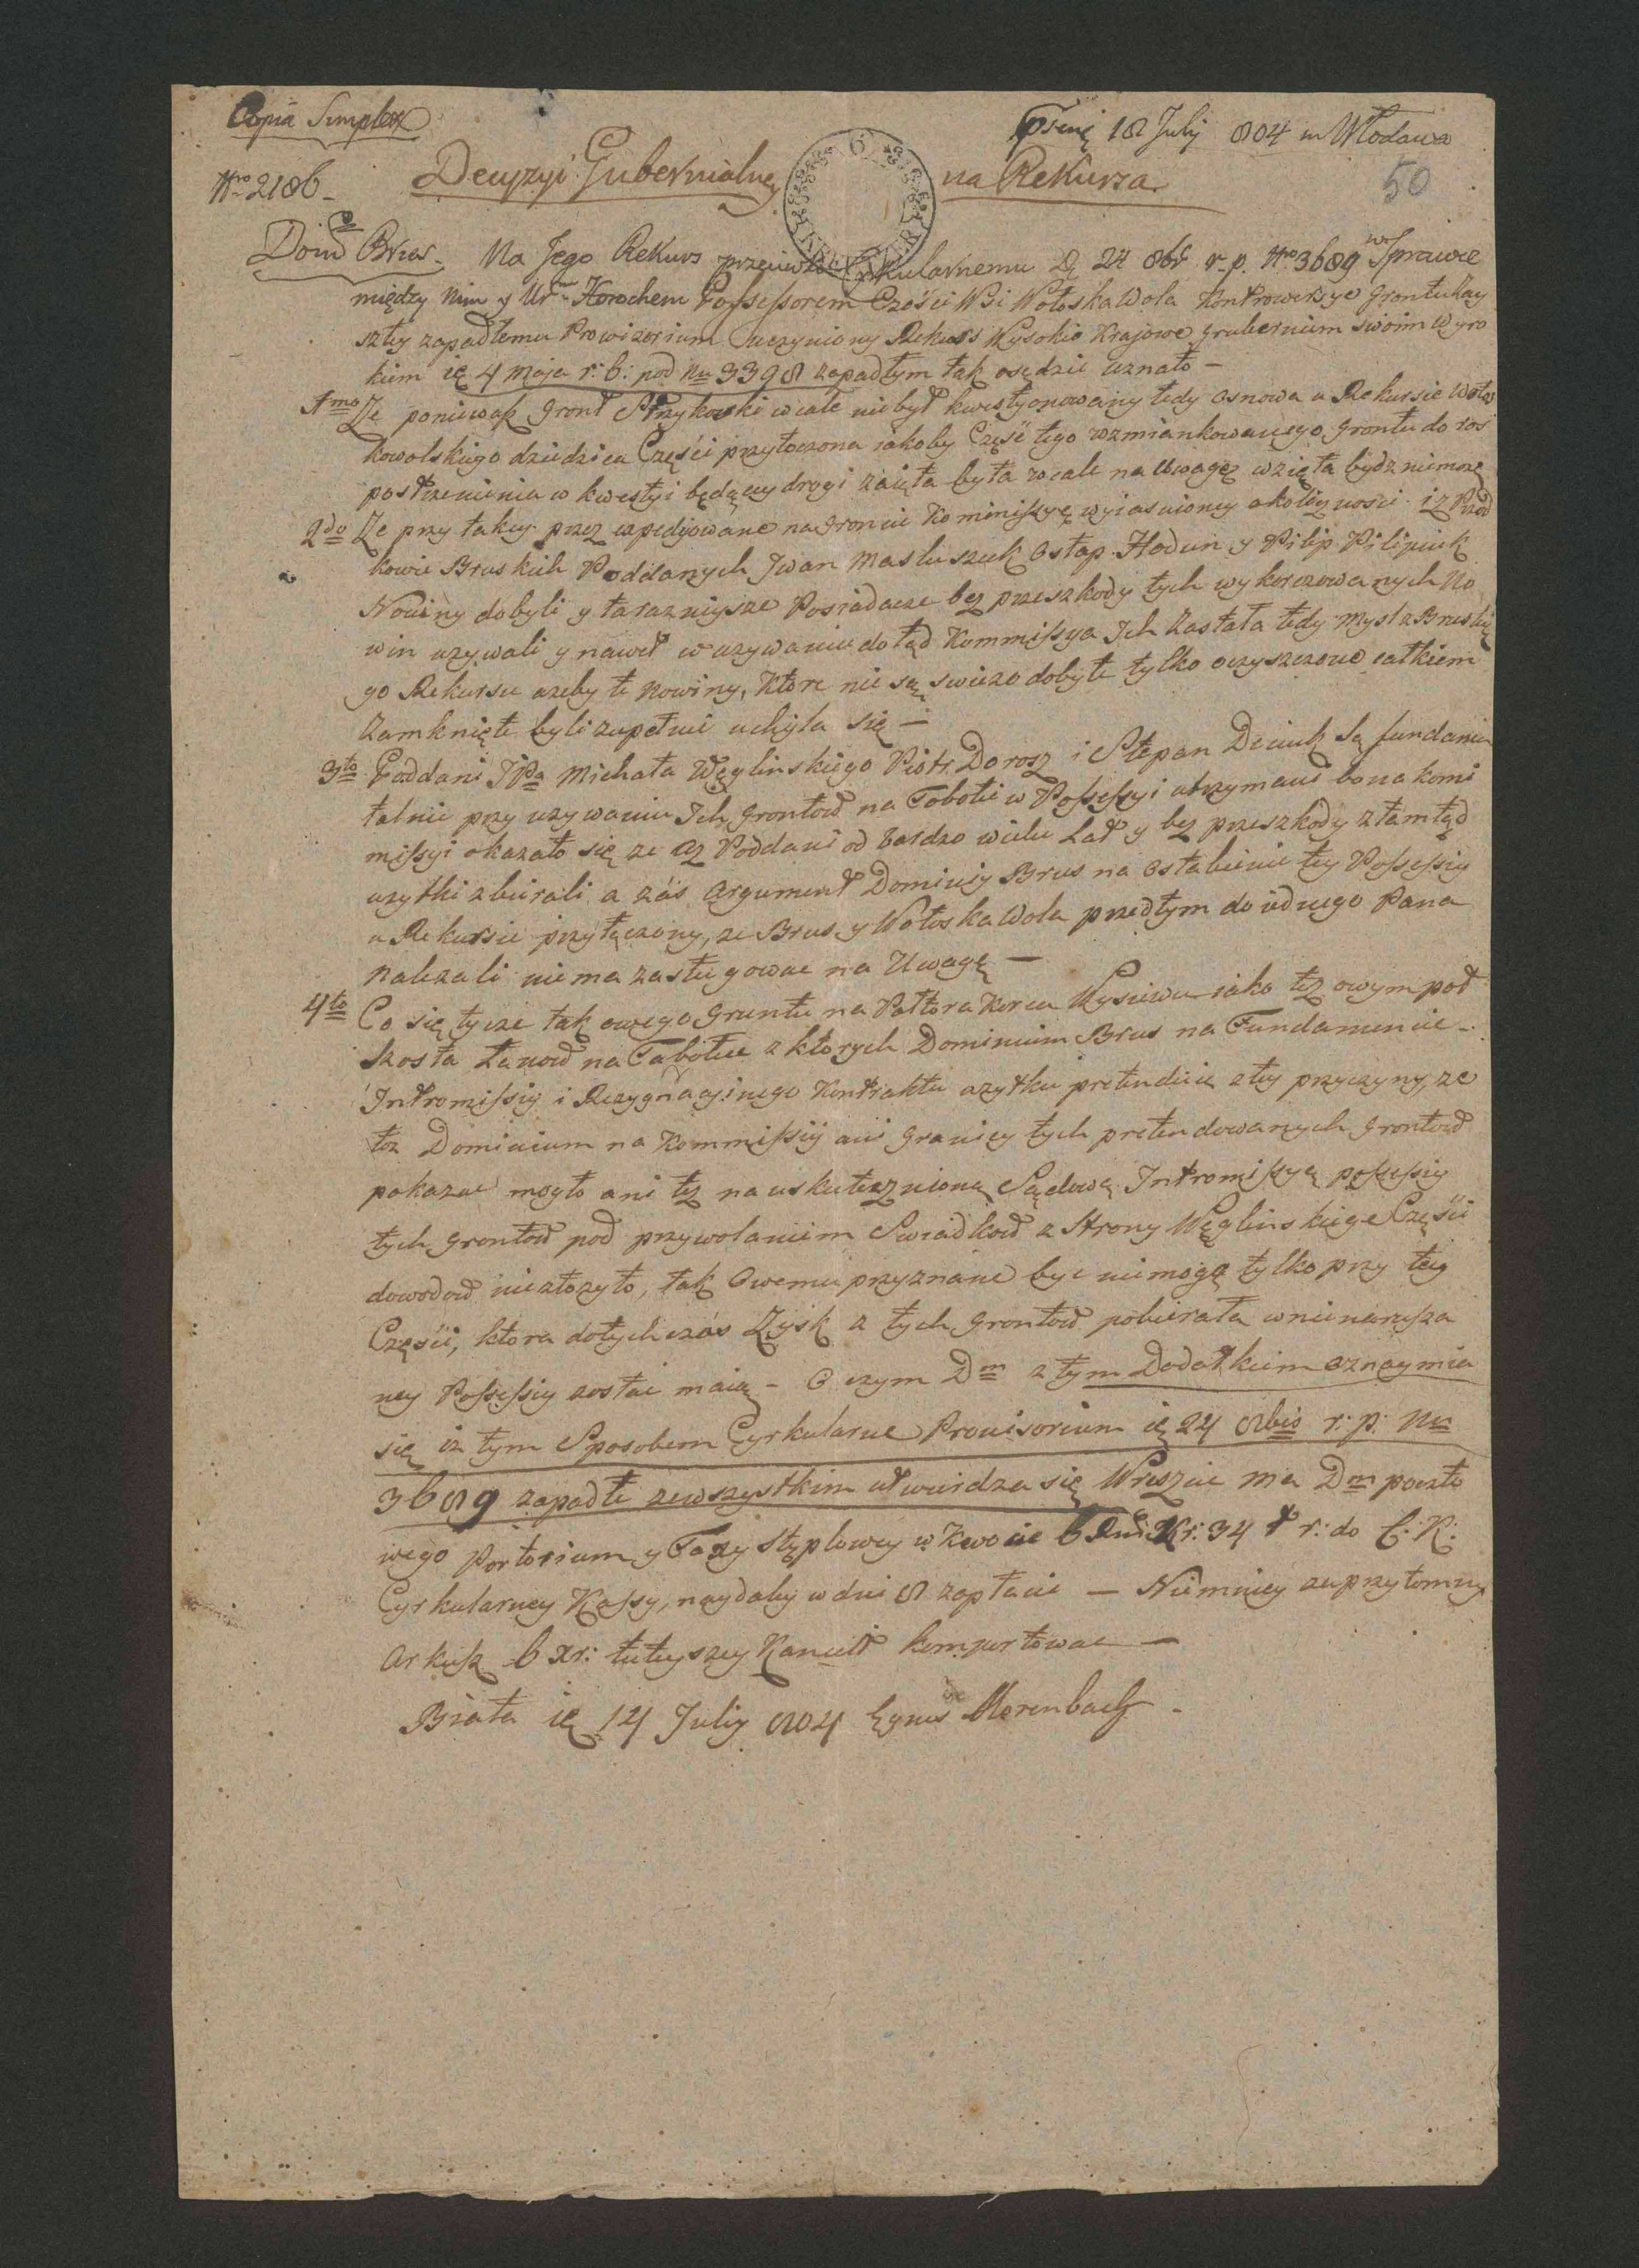 Copia Simplex
psent 18 July 804 in Włodawa
Nro 2186
Decyzyi Gubernialney na Rekursa.
50
6
Domo Brus. Na Jego Rekurs przeciwko Cyrkularnemu 24 8br r. p. Nro 3689 w Sprawie
między Nim y Ur. Horochem Possessorem Części Wsi Wołoska Wola Kontrowersye Gruntu Zay
szłey zapadłemu Prowizorium uczyniony Rekurs Wysokie Krajowe Gubernium swoim Wyro
kiem 4 Maja r: b: pod Nu 3398 zapadłym tak osądzić uznało —
1mo Ze poniewasz Gront Strzykowski wcale niebył kwestyonowany tedy osnowa w Rekursie Wołos
kowolskiego dziedzica Części przytoczona iakoby Część tego wzmiankowanego Grontu do ros
postrzenienia w kwestyi będący drogi zaięta była wcale na Uwagę wzięta bydz niemoże
2do Ze przy takey przez expedyowane na Groncie Kommissyę wyiasnioney okolicznosci iz Przod
kowie Bruskich Poddanych Jwan Masluszczuk Ostap Hodun y Pilip Pilipiuk
Nowiny dobyli y tarazniysze Posiadacze bez przeszkody tych wykorczowanych No
win uzywali y nawet w uzywaniu dotąd Kommissya Ich Zastała tedy mysl z Bruskie
go Rekursu azeby te Nowiny, Które nie są swiezo dobyte tylko oczyszczone całkiem
Zamknięte byli zupełnie uchyla się —
3to Poddani JPa Michała Węglinskiego Piotr Dorosz i Stepan Deciuk są fundamen
talnie przy uzywaniu Ich Grontow na Tobołie w Possessyi utrzymani bo na komi
missyi okazało się ze Cz Poddani od bardzo wielu Lat y bez przeszkody ztamtąd
uzytki zbierali a zás Argument Dominiy Brus na Osłabienie tey Possessiy
w Rekursie przytęczony, ze Brus y Wołoska Wola przedtym do iednego Pana
należali niema zasługować na Uwagę —
4to Co się tycze tak owego Gruntu na Połtora Korca Wysiewu iako też owym poł
szosta Łanow na Tabołie z których Dominium Brus na Fundamencie
Intromissiy i Rezygnacyinego Kontraktu uzytku pretenduie z tey przyczyny, ze
toz Dominium na Kommissiy ani Granicy tych pretendowanych Grontow
pokazac mogło ani też na uskutecznioną Sądową Intromissyą possessiy
tych Grontow pod przywołaniem Swiadkow z Strony Węglinskiego Części
dowodow niezłozyło, tak Owemu przyznane być niemogą tylko przy tey
Części, ktora dotychczás Zysk z tych Grontow pobierała w nienarusza
ney Possessiy zostać maią — O czym Dm z tym Dodatkiem oznaymia
się iz tym Sposobem Cyrkularne Prouisorium 24 8bis r: p: Nu
3689 zapadłe zewszystkim utwierdza się Wreszcie ma Dm poczto
wego Portorium y Taxy Stęplowey w kwocie 6 Kr: 34 r: do C: K:
Cyrkularney Kassy, naydaley w dni 8 zapłacić — Niemniey zaprzytomny
Arkusz 6 xr: tuteyszey Kancell komportowac —
Biała 14 July 804 Merenbach